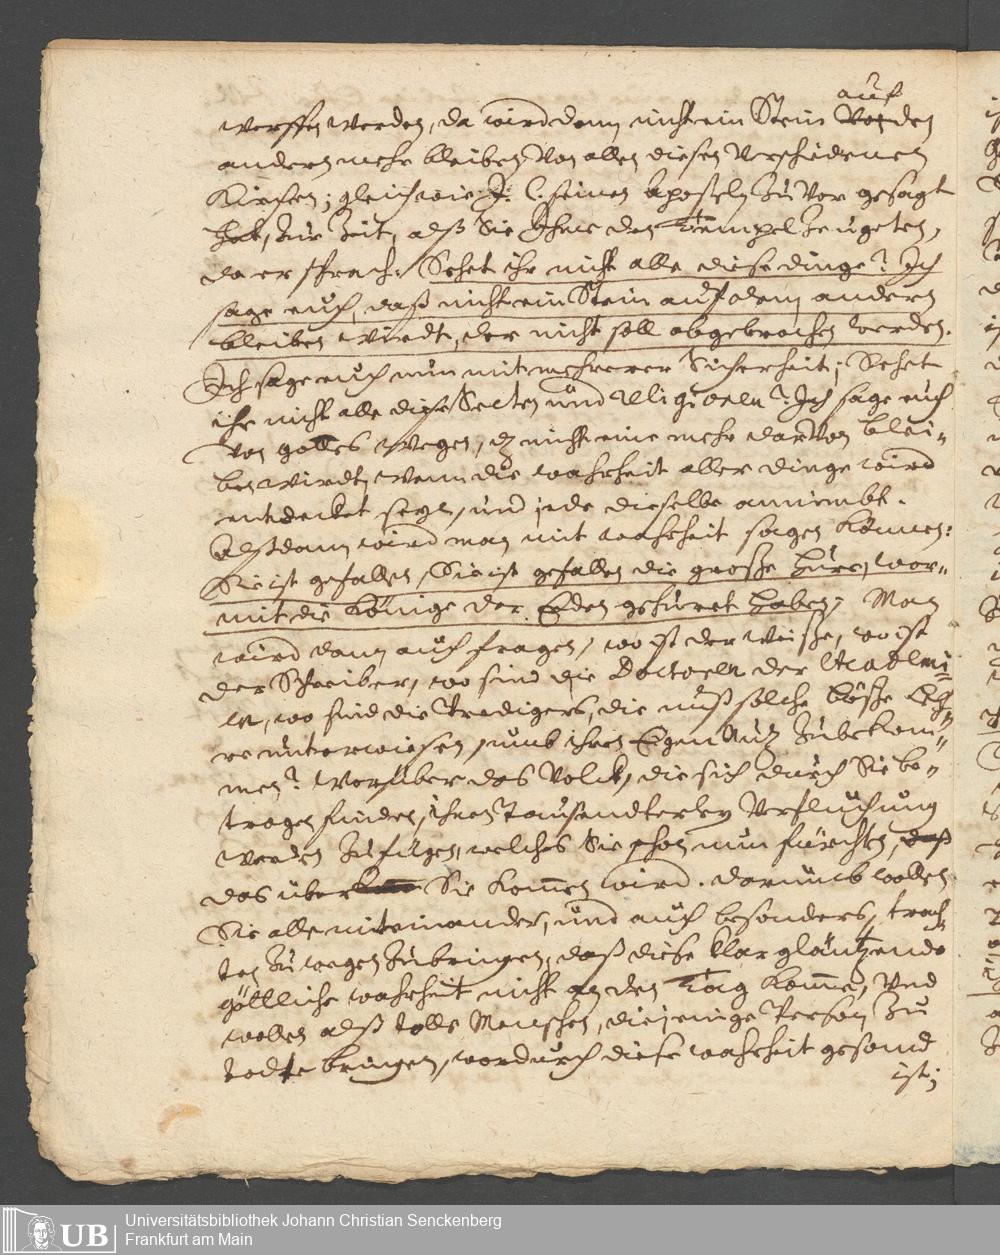 auf
werffen werden, da wird dann nicht ein Stein Von den
andern mehr bleiben Von allen diesen Verschiedenen
Kirchen; gleich wie J: C. seinen Aposteln zu Vor gesagt
hat, zur Zeit, alß Sie Ihme den Tempel zeugeten,
da er sprach: Sehet ihr nicht alle diese dinge? Ich
sage euch, daß nicht ein Stein auf dem andern
bleiben wirdt, der nicht soll abgebrochen werden.
Ich sage euch nun mit mehrerer Sicherheit; Sehet
ihr nicht alle diese Secten und Religionen? Ich sage euch
Von gottes Wegen, dz nicht eine mehr darVon blei-
ben wirdt, Wenn die wahrheit aller dinge wird
entdecket seyn, und jede dieselbe annimbt.
Alßdann wird man mit wahrheit sagen können:
Sie ist gefallen, Sie ist gefallen die große hure, wor-
mit die Könige der Erden gehuret haben; Man
wird dann auch fragen, wo ist der Weiße, wo ist
der Schreiber, wo sind die Doctoren der Academi-
en, wo sind die Prediger, die unß solche böße Leh-
re unterwiesen, umb ihren Eigen Nutz zu bekom-
men? Worüber das Volck, die sich durch Sie be-
trogen finden, ihnen Tausendterley Verfluchung
werden zufügen, welches Sie schon nun fürchten, daß
das über Sie kommen wird. darumb wollen
Sie alle miteinander, und auch besonders, trach-
ten zu wegen zubringen, daß diese klar gläntzende
göttliche wahrheit nicht an den Tag komme, Und
wollen alß tolle Menschen, diejenige Person zu
todte bringen, wordurch diese wahrheit gesand
ist;
Universitätsbibliothek Johann Christian Senckenberg
Frankfurt am Main
UB